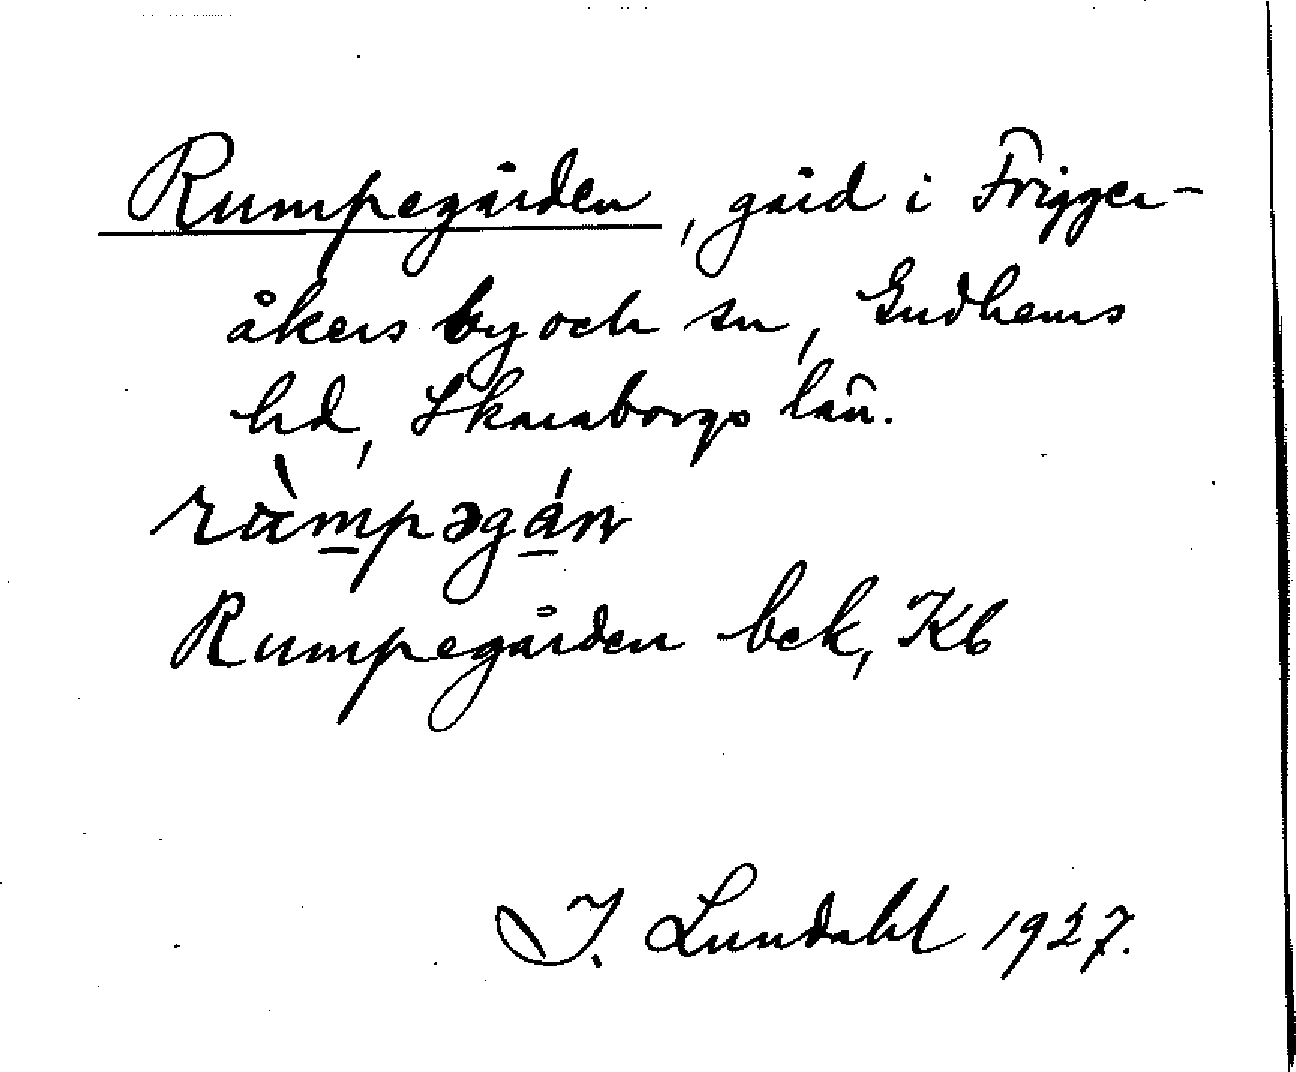 Rumpegården, gård i Frigger-
åkers by och sn, Gudhems
hd, Skaraborgs län.
ràmpəgán
Rumpegården bek, Kb
I. Lundahl 1927.